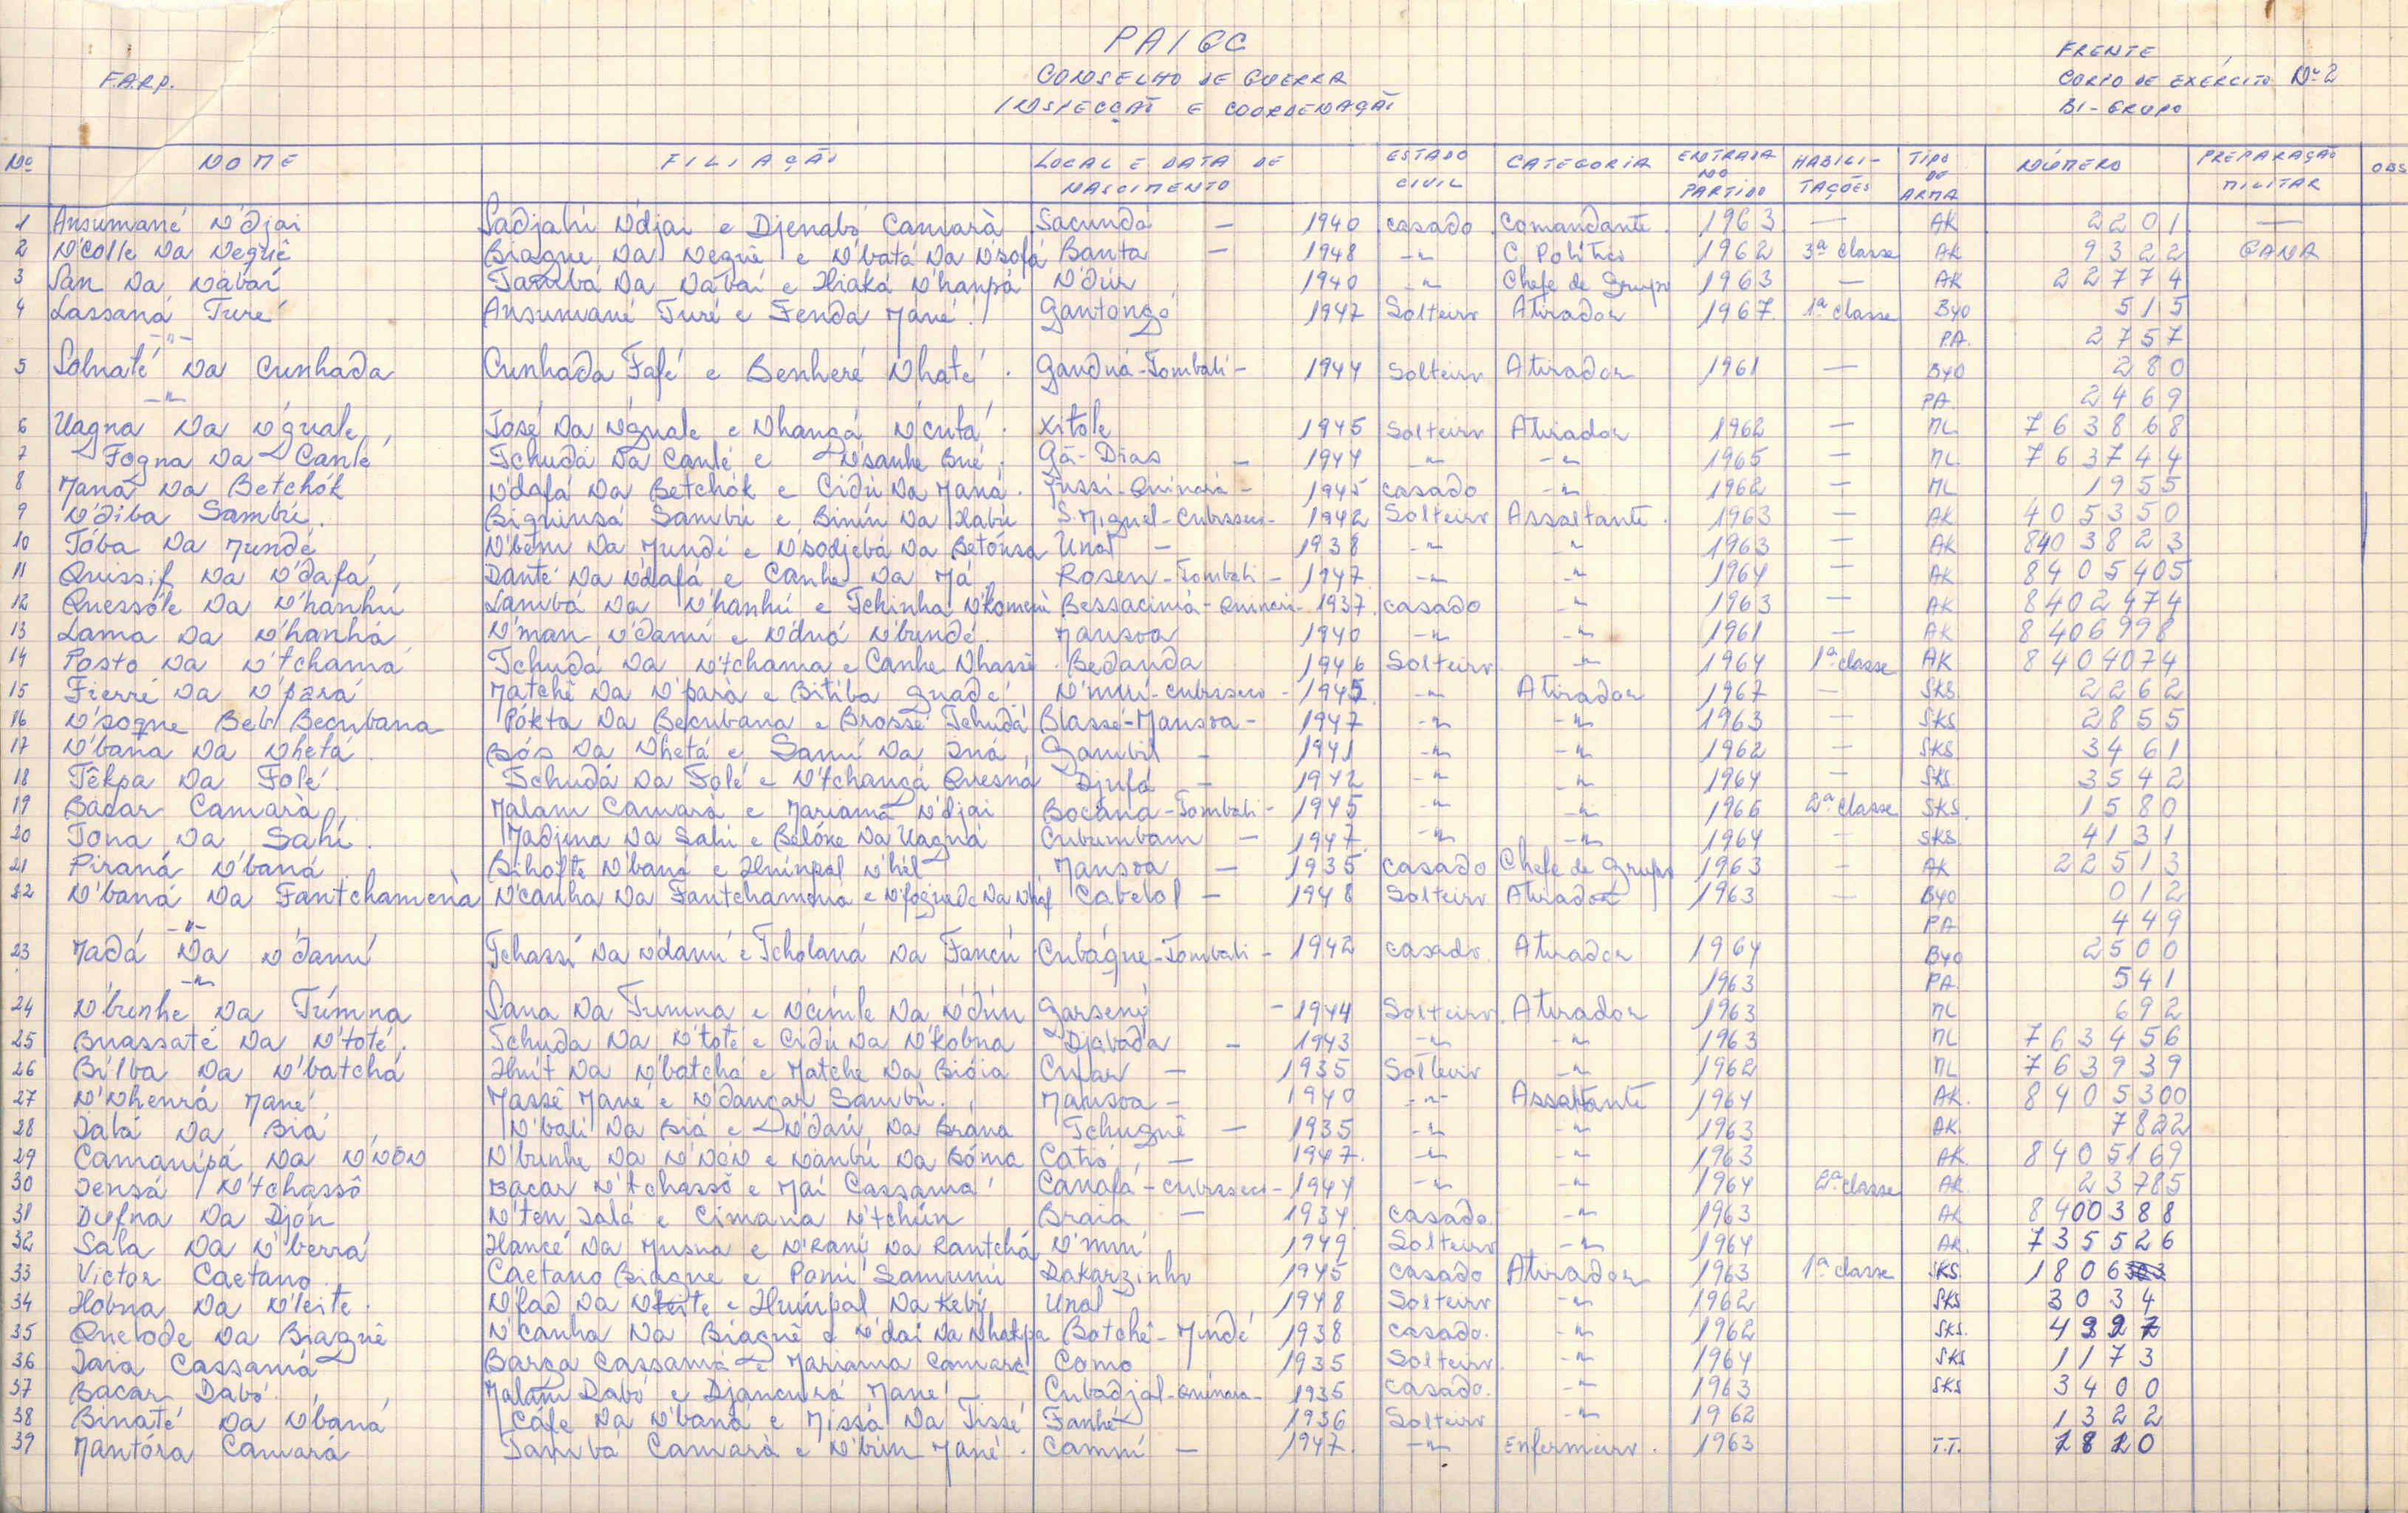 PAIGC
F.A.R.P.
CONSELHO DE GUERRA
INSPECÇÃO E COORDENAÇÃO
FRENTE
CORPO DE EXÉRCITO Nº 2
BI-GRUPO
Nº NOME FILIAÇÃO LOCAL E DATA DE NASCIMENTO ESTADO CIVIL CATEGORIA ENTRADA NO PARTIDO HABILITAÇÕES TIPO DE ARMA NÚMERO PREPARAÇÃO MILITAR OBS
1 Ansumané N'djai Sadjahi N'djai e Djenabó Camará Sacunda — 1940 casado Comandante 1963 — AK 2201 —
2 N'colle Na Neguê Biague Na Neguê e N'batá Na N'sofá Banta — 1948 -"- C. Político 1962 3ª classe AK 9322 GANA
3 San Na Nabaí Tambá Na Nabaí e Hiaká N'hanpá N'dúr 1940 -"- Chefe de Grupo 1963 — AK 22774
4 Lassaná Turé Ansumané Turé e Fenda Mané. Gantongó 1947 Solteiro Atirador 1967 1ª classe B40 515
-"- PA. 2757
5 Solnaté Na Cunhada Cunhada Fafé e Benheré Nhaté. Gandná-Tombali- 1944 Solteiro Atirador 1961 — B40 280
-"- PA. 2469
6 Uagna Na N'guale José Na N'guale e Nhangá N'cutá. Xitole 1945 Solteiro Atirador 1962 — ML 763868
7 Fogna Na Canlé Tchudá Na Canlé e N'sanhe Bué. Gã-Dias — 1944 -"- -"- 1965 — ML 763744
8 Maná Na Betchók N'dafá Na Betchók e Cidú Na Maná. Jussi-Quinara- 1945 casado -"- 1962 — ML 1955
9 N'diba Sambú. Biguinsá Sambú e Binín Na Habú S. Miguel-Cubisseco- 1942 Solteiro Assaltante. 1963 — AK 405350
10 Tóba Na Mundé N'bém Na Mundé e N'sodjebá Na Betónsa Unal — 1938 -"- -"- 1963 — AK 8403823
11 Quissif Na N'dafá Danté Na N'dafá e Canhe Na Má Rosen-Tombali- 1947 -"- -"- 1964 — AK 8405405
12 Quessóle Na N'hanhú Lambá Na N'hanhú e Tchinha N'komeni Bessacimá-Quinara- 1937 casado -"- 1963 — AK 8402474
13 Lama Na N'hanhá N'man N'damí e N'duá N'bundé. Mansoa 1940 -"- -"- 1961 — AK 8406998
14 Posto Na N'tchamá Tchudá Na N'tchama e Canhe Nhassê. Bedanda 1946 Solteiro -"- 1964 1ª classe AK 8404074
15 Fierré Na N'pará Matchê Na N'pará e Bitiba Guadé N'muí-Cubisseco- 1945 -"- Atirador 1967 — SKS. 2262
16 N'sogne Beb Becubana Pókta Na Becubana e Brossé Tchudá Blassé-Mansoa- 1947 -"- -"- 1963 — SKS 2855
17 N'bana Na Nhetá Bós Na Nhetá e Samí Na Iná Gambil — 1941 -"- -"- 1962 — SKS 3461
18 Têkpa Na Folé Tchudá Na Folé e N'tchangá Quesná Djufá — 1942 -"- -"- 1964 — SKS. 3542
19 Bácar Camará Malam Camará e Mariamã N'djai Bocána-Tombali- 1945 -"- -"- 1966 2ª classe SKS. 1580
20 Tona Na Sahí. Madjina Na Sahi e Belóne Na Uagná Cubumbam — 1947 -"- -"- 1964 — SKS. 4131
21 Piraná N'baná Biholte N'baná e Huínpal N'hél Mansoa — 1935 casado Chefe de Grupo 1963 — AK 22513
22 N'baná Na Fantchamená N'canha Na Fantchamená e Cabelol — 1948 Solteiro Atirador 1963 — B40 012
-"- PA 449
23 Madá Na N'damí Tchassí Na N'damí e Tcholaná Na Fancú Cubágne-Tombali- 1942 casado. Atirador 1964 B40 2500
-"- 1963 PA. 541
24 N'bunhe Na Túmna Sana Na Tumna e N'cimle Na N'dún Garsené — 1944 Solteiro. Atirador 1963 ML 692
25 Buassaté Na N'toté. Tchuda Na N'toté e Cidú Na N'kobna Djabada — 1943 -"- -"- 1963 ML 763456
26 Bilba Na N'batchá Huít Na N'batchá e Matche Na Bióia Cufar — 1935 Solteiro -"- 1962 ML 763939
27 N'Nhenrá Mané Massê Mané e N'dançar Sambú. Mansoa — 1940 -"- Assaltante 1964 AK. 8405300
28 Ialá Na Biá N'bali Na Biá e N'daní Na Brána Tchugué — 1935 -"- -"- 1963 AK. 7822
29 Camanípá Na N'NÓN N'bunhe Na N'NÓN e Nanbú Na Bóma Catió — 1947. -"- -"- 1963 AK. 8405169
30 Jensá N'tchassô Bacar N'tchassô e Maí Cassamá Canafá-Cubisseco- 1944 -"- -"- 1964 2ª classe AK. 23785
31 Dufna Na Djón N'ten Ialá e Cimana N'tchún Braia — 1934 casado. -"- 1963 AK 8400388
32 Sala Na N'berrá Hancé Na Musna e N'Raní Na Rantchá N'muí 1949 Solteiro -"- 1964 AK. 735526
33 Victor Caetano. Caetano Biague e Pomi Samuní Dakarzinho 1945 casado Atirador 1963 1ª classe SKS 1806
34 Hobna Na N'leite. N'fad Na N'leite e Huínpal Na Kebi Unal 1948 Solteiro -"- 1962 SKS 3034
35 Quelode Na Biaguê N'canha Na Biaguê e N'dai Na Nhakpa Batchê-Mindé 1938 casado. -"- 1962 SKS. 4327
36 Iaia Cassamá Barça Cassamá e Mariama Camará Como 1935 Solteiro. -"- 1964 SKS 1173
37 Bacar Dabó. Malam Dabó e Djancurá Mané Cubadjal-Quinara- 1935 casado. -"- 1963 SKS 3400
38 Binaté Na N'baná Cáfe Na N'baná e Missá Na Tissé Fanhé 1936 Solteiro -"- 1962 1322
39 Mantóra Camará Tambá Camará e N'bim Mané. Camuí — 1947. -"- Enfermeiro. 1963 T.T. 1820